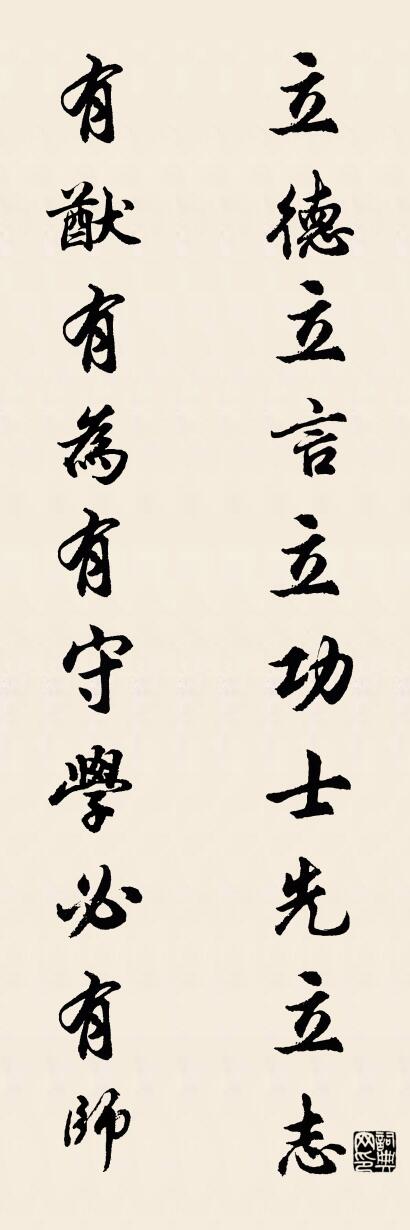 立德立言立功士先立志
有猷有為有守學必有師
詞典網印